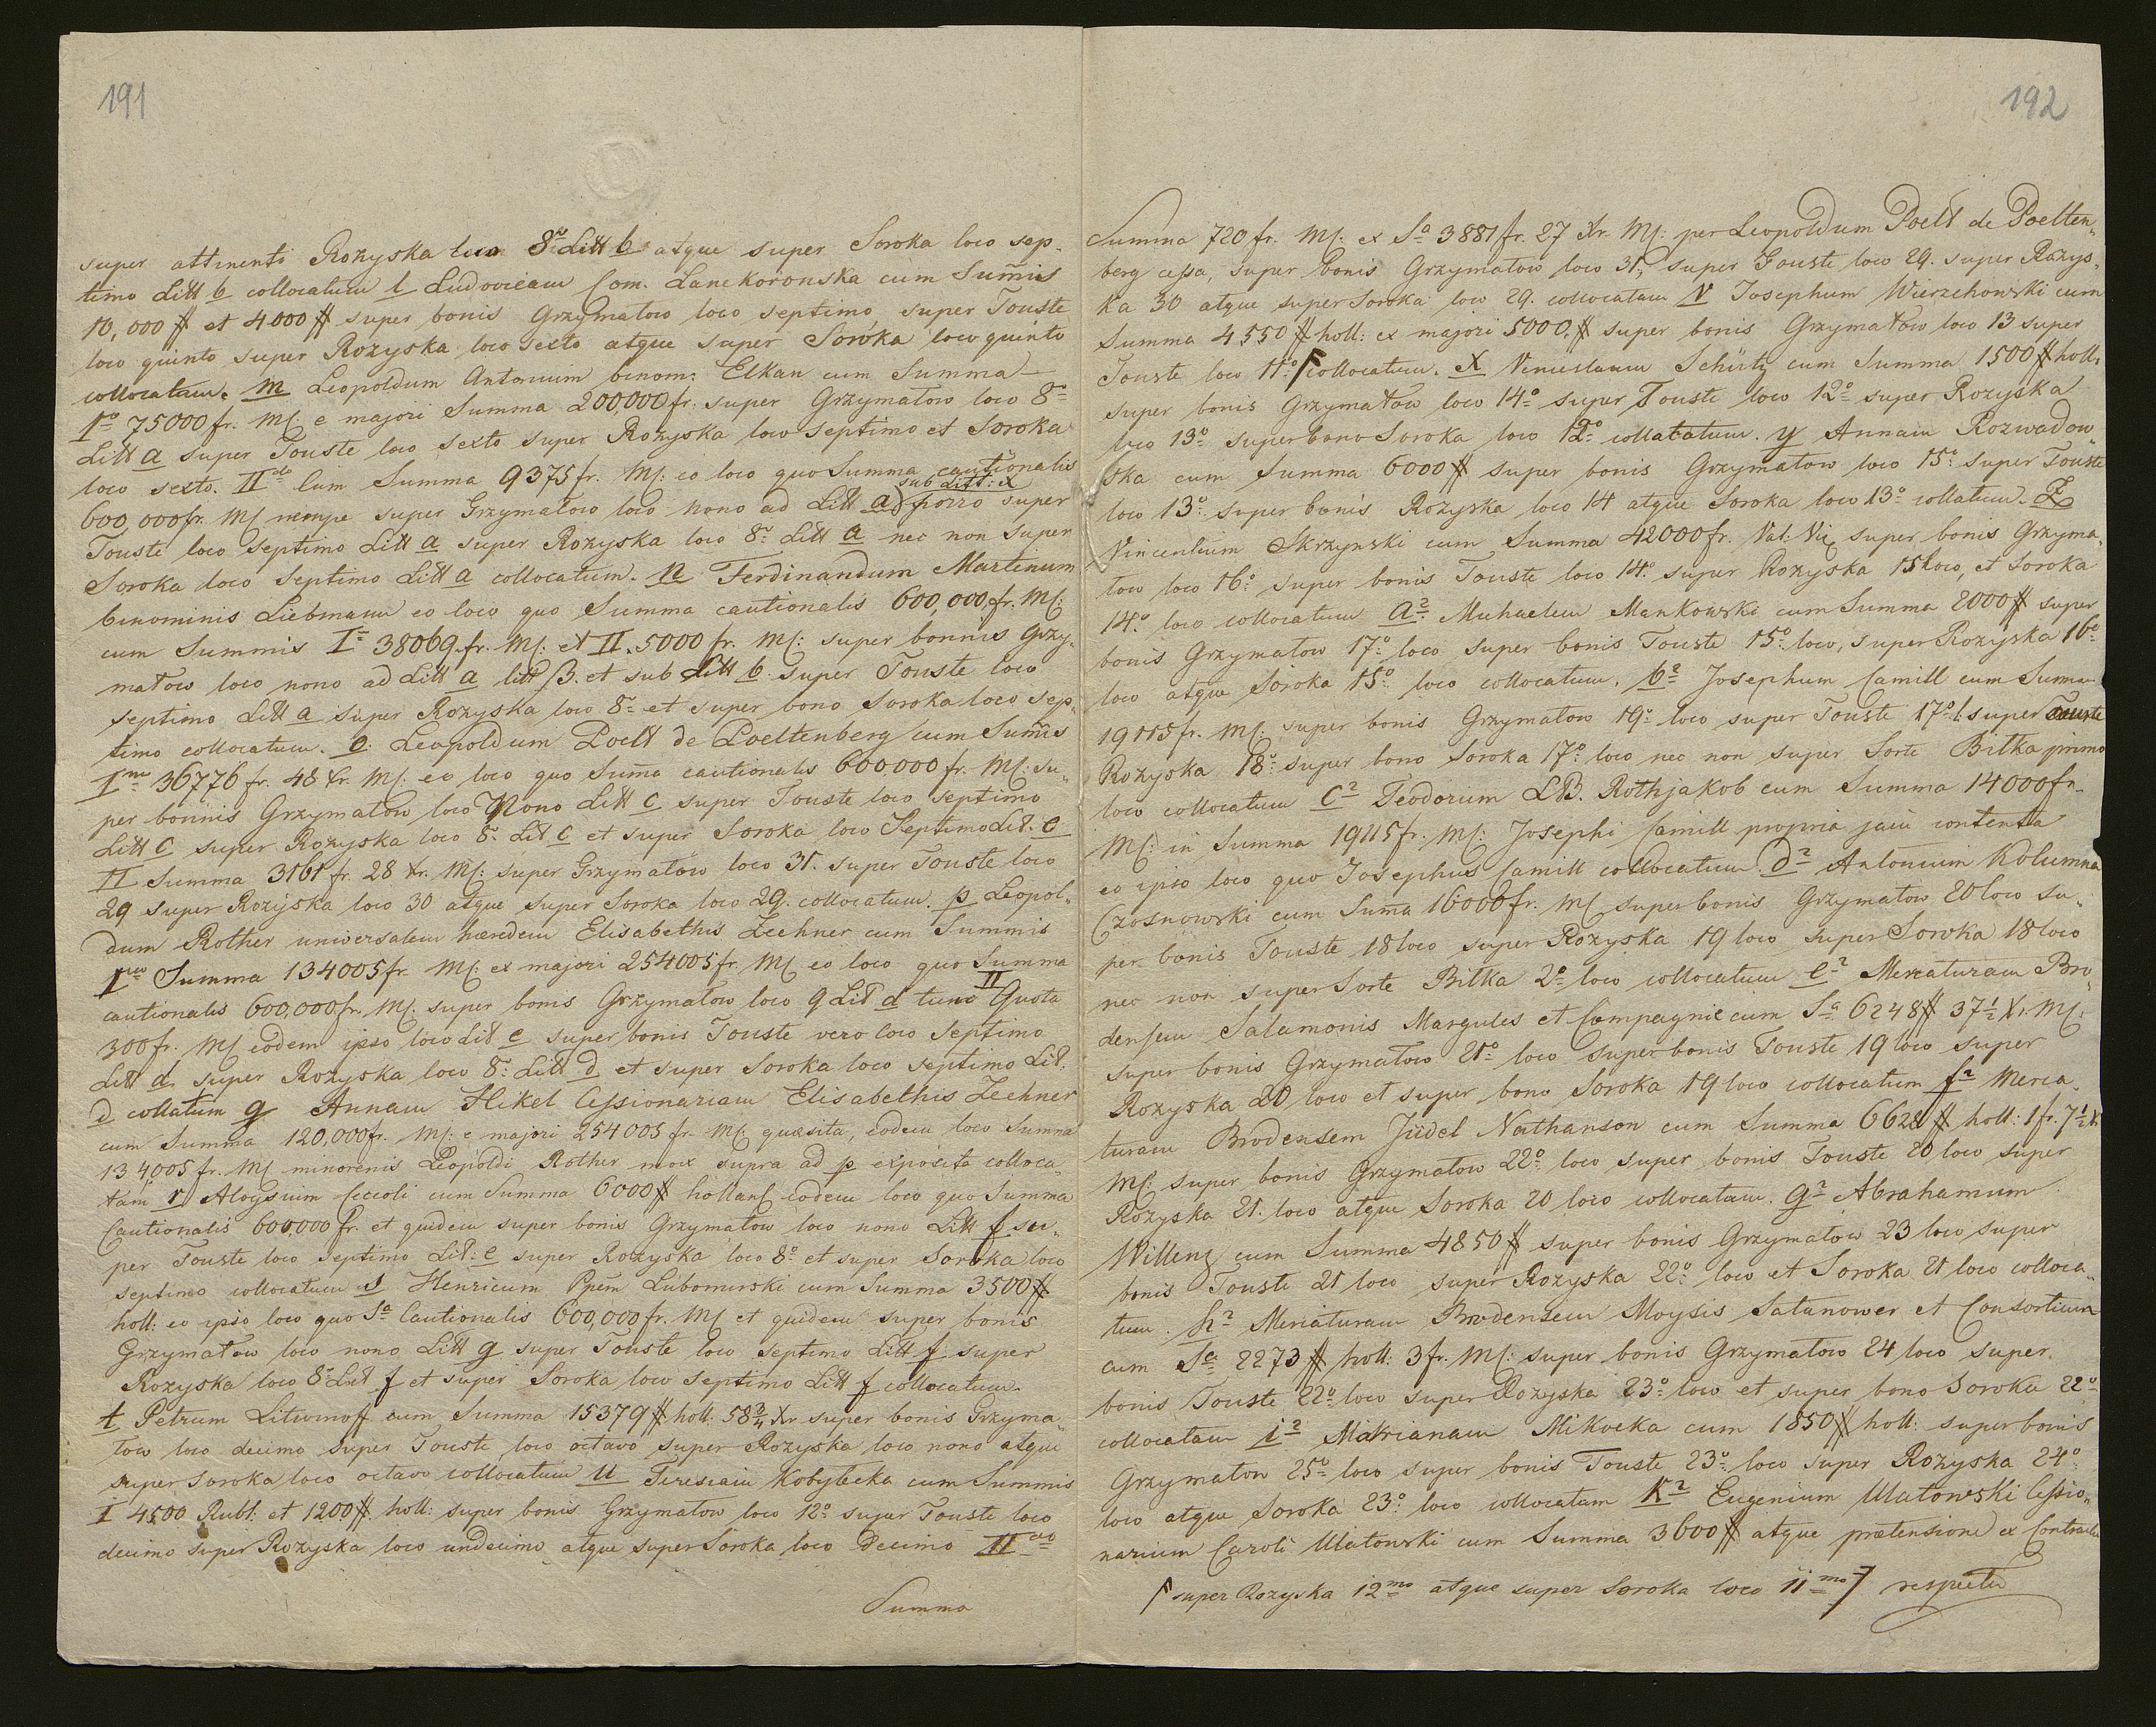 191
super attinenti Rozyska loco 8º Litt b atque super Soroka loco sep-
timo Litt b collocatum l Ludovicam Com. Lanckorońska cum Sumis
10,000 # et 4000 # super bonis Grzymatow loco septimo, super Touste
loco quinto super Rozyska loco sexto atque super Soroka loco quinto
collocatam. m Leopoldum Antonium binom: Elkan cum Summa
Iº 75000 fr. M[: e majori Summa 200,000 fr. super Grzymatow loco 8º
Litt a super Touste loco sexto super Rozyska loco septimo et Soroka
loco sexto. IIdo Cum Summa 9375 fr. M[: eo loco quo Summa cautionalis
600,000 fr. M[ nempe super Grzymatow loco nono ad Litt a) sub Litt: α porro super
Touste loco septimo Litt a super Rozyska loco 8º Litt a nec non super
Soroka loco septimo Litt a collocatum. n Ferdinandum Martinum
binominis Liebmann eo loco quo Summa cautionalis 600,000 fr. M[:
cum Summis Iº 38069 fr. M[: et II. 5000 fr. M[: super bonnis Grzy-
matow loco nono ad Litt a litt β. et sub Litt b super Touste loco
septimo Litt a super Rozyska loco 8º et super bono Soroka loco sep-
timo collocatum. o. Leopoldum Poelt de Poeltenberg cum Sumis
Imo 36776 fr. 48 Xr. M[: eo loco quo Suma cautionalis 600000 fr. M[: su-
per bonnis Grzymatow loco Nono Litt c super Touste loco septimo
Litt c super Rozyska loco 8º Lit c et super Soroka loco Septimo Lit. c
II Summa 3161 fr. 28 Xr. M[: super Grzymatow loco 31. super Touste loco
29 super Rozyska loco 30 atque super Soroka loco 29. collocatum. p Leopol-
dum Rother universalem haeredem Elisabethis Zechner cum Summis
Imo Summa 134005 fr. M[: ex majori 254005 fr. M[ eo loco quo Summa
cautionalis 600,000 fr. M[. super bonis Grzymatow loco 9 Lit d tum II Quota
300 fr. M[ eodem ipso loco Lit e super bonis Touste vero loco septimo
Litt d. super Rozyska loco 8º Litt d et super Soroka loco septimo Lit.
d collatum q Annam Hikel Cessionariam Elisabethis Zechner
cum Summa 120,000 fr. M[: e majori 254005 fr. M[: quaesita, eodem loco Summa
134,005 fr. M[ minorenis Leopoldi Rother mox supra ad p exposita colloca-
tam r Aloysium Ceccoli cum Summa 6000 # holland eodem loco quo Summa
Cautionalis 600,000 fr. et quidem super bonis Grzymatow loco nono Litt f su-
per Touste loco septimo Lit: e super Rozyska loco 8º et super Soroka loco
septimo collocatum s Henricum Ppem Lubomirski cum Summa 3500 #
holl: eo ipso loco quo Sa Cautionalis 600,000 fr. M[ et quidem super bonis
Grzymatow loco nono Litt g super Touste loco septimo Litt f super
Rozyska loco 8º Lit f et super Soroka loco septimo Litt f collocatum.
t Petrum Litwinoff cum Summa 15379 # holl: 58 3/4 Xr super bonis Grzyma-
tow loco decimo super Touste loco octavo super Rozyska loco nono atque
super Soroka loco octavo collocatum u Teresiam Kobylecka cum Summis
I 4500 Rubl: et 1200 # holl: super bonis Grzymatow loco 12º super Touste loco
decimo super Rozyska loco undecimo atque super Soroka loco Decimo IIdo
Summa
192
Summa 720 fr. M[: ex Sa 3881 fr. 27 Xr. M[: per Leopoldum Poelt de Poelten-
berg cessa, super bonis Grzymatow loco 31, super Touste loco 29. super Rozys-
ka 30 atque super Soroka loco 29. collocatam v Josephum Wierzchowski cum
Summa 4550 # holl: ex majori 5000. # super bonis Grzymatow loco 13 super
Touste loco 11º collocatum. x Venceslaum Schürtz cum Summa 1500 # holl:
super bonis Grzymatow loco 14º super Touste loco 12º super Rozyska
loco 13º super bono Soroka loco 12º collocatum. y Annam Rozwadow-
ska cum Summa 6000 # super bonis Grzymatow loco 15º super Touste
loco 13º super bonis Rozyska loco 14 atque Soroka loco 13º collatum. z
Vincentium Skrzynski cum Summa 42000 fr. Val: Vie super bonis Grzyma-
tow loco 16º super bonis Touste loco 14º super Rozyska 15 loco, et Soroka
14º loco collocatum a2 Michaelem Mankowski cum Summa 2000 # super
bonis Grzymatow 17º loco super bonis Touste 15º loco, super Rozyska 16º
loco atque Soroka 15º loco collocatum. b2 Josephum Camill cum Summa
19115 fr. M[: super bonis Grzymatow 19º loco super Touste 17º l. super Touste
Rozyska 18º super bono Soroka 17º loco nec non super Sorte Bitka primo
loco collocatum c2 Teodorum LB. Rothjakob cum Summa 14000 fr.
M[: in Summa 19115 fr. M[: Josephi Camill propria jam contenta
eo ipso loco quo Josephus Camill collocatum. d2 Antonium Kolumna
Czosnowski cum Suma 16000 fr. M[ super bonis Grzymatow 20 loco su-
per bonis Touste 18 loco super Rozyska 19 loco super Soroka 18 loco
nec non super Sorte Bitka 2º loco collocatum e2 Mercaturam Bro-
densem Salamonis Margules et Compagnie cum Sa 6248 # 37 1/2 Xr. M[:
super bonis Grzymatow 21º loco super bonis Touste 19 loco super
Rozyska 20 loco et super bono Soroka 19 loco collocatum f2 Merca-
turam Brodensem Jüdel Nathanson cum Summa 6628 # holl: 1 fr. 7 1/2 X
M[: super bonis Grzymatow 22º loco super bonis Touste 20 loco super
Rozyska 21. loco atque Soroka 20 loco collocatam. g2 Abrahamum
Willenz cum Summa 4850 # super bonis Grzymatow 23 loco super
bonis Touste 21 loco super Rozyska 22º loco et Soroka 21 loco colloca-
tum. h2 Mercaturam Brodensem Moysis Satanower et Consortium
cum Sa 2273 # holl: 3 fr. M[: super bonis Grzymatow 24 loco super
bonis Touste 22º loco super Rozyska 23º loco et super bono Soroka 22º
collocatam i2 Marianam Mikocka cum 1850 # holl: super bonis
Grzymatow 25º loco super bonis Touste 23º loco super Rozyska 24º
loco atque Soroka 23º loco collocatam k2 Eugenium Ulatowski Cessio-
narium Caroli Ulatowski cum Summa 3600 # atque praetensione ex Contractu
super Rozyska 12mo atque super Soroka loco 11mo respectu